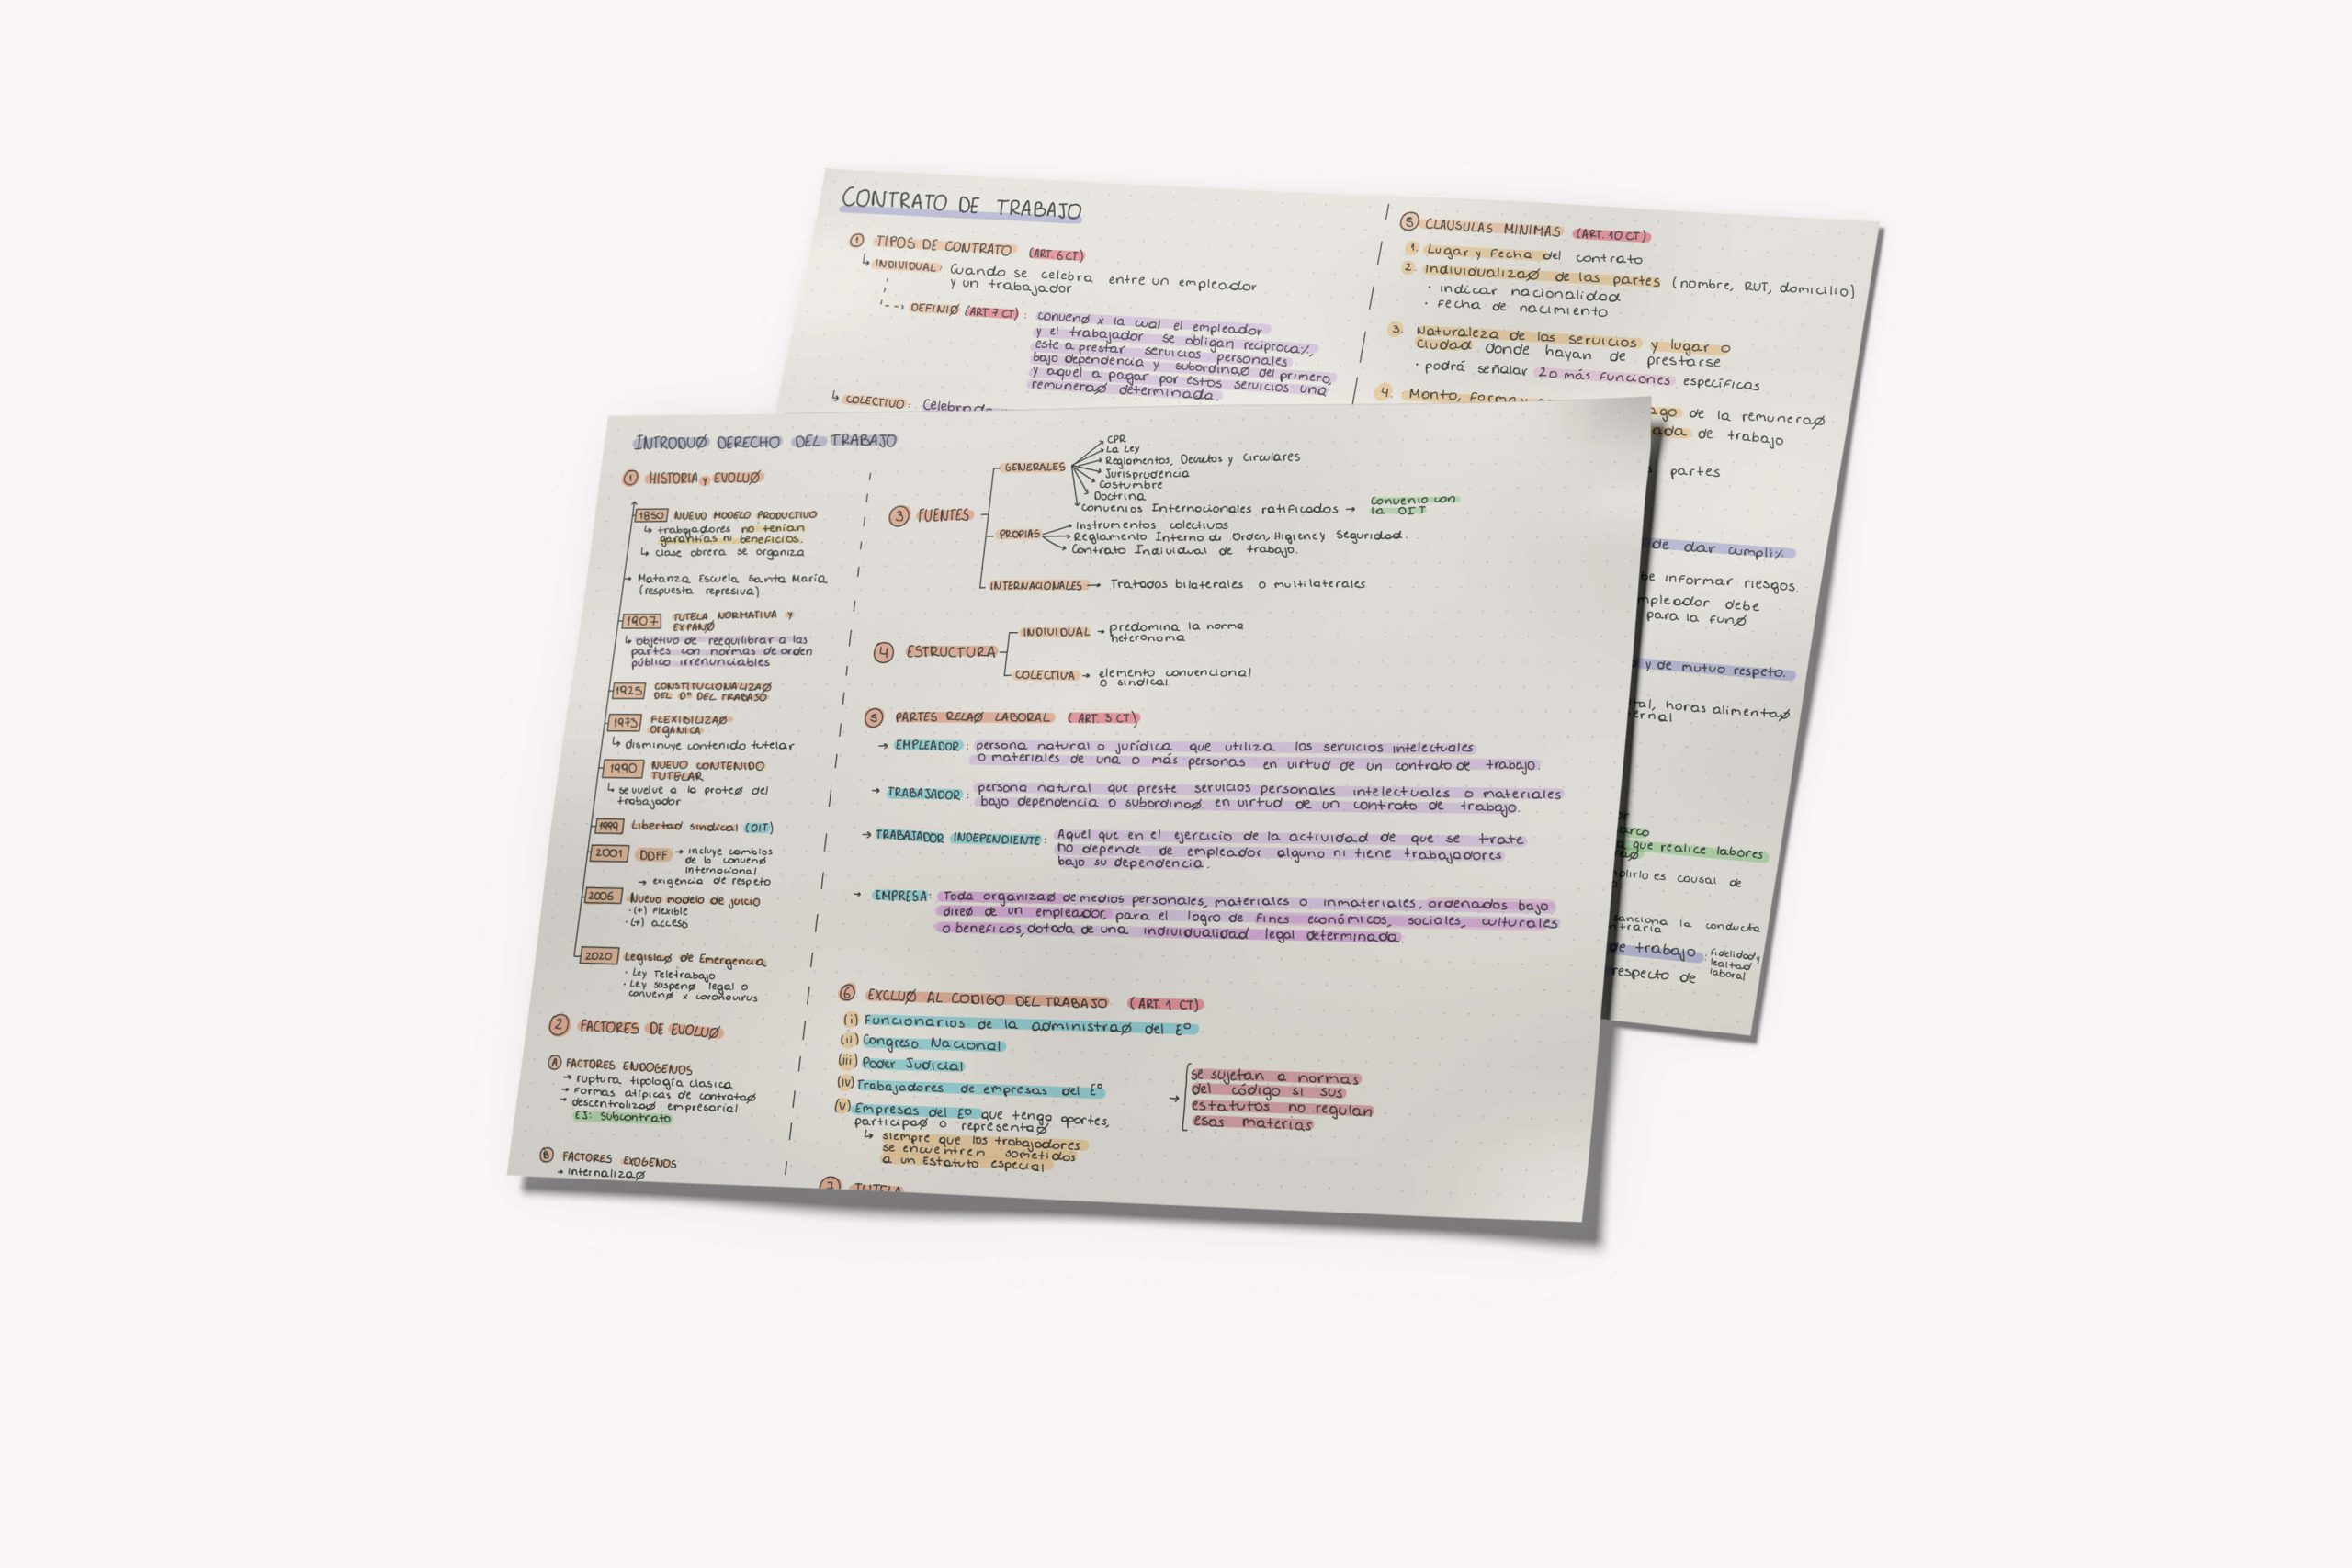 CONTRATO DE TRABAJO
① TIPOS DE CONTRATO (ART. 6 CT)
↳ INDIVIDUAL: Cuando se celebra entre un empleador
y un trabajador
DEFINIØ (ART 7 CT): convenØ x la cual el empleador
y el trabajador se obligan reciproca٪,
este a prestar servicios personales
bajo dependencia y subordinaØ del primero,
y aquel a pagar por estos servicios una
remuneraØ determinada.
↳ COLECTIVO: Celebrado
⑤ CLAUSULAS MINIMAS (ART. 10 CT)
1. Lugar y Fecha del contrato
2. IndividualizaØ de las partes (nombre, RUT, domicilio)
· indicar nacionalidad
· fecha de nacimiento
3. Naturaleza de los servicios y lugar o
ciudad donde hayan de prestarse
· podrá señalar 2 o más funciones específicas
4. Monto, forma y
ago de la remuneraØ
ada de trabajo
partes
de dar cumpli٪
be informar riesgos.
mpleador debe
para la funØ
y de mutuo respeto.
tal, horas alimentaØ
ernal
arco
a que realice labores
plirlo es causal de
sanciona la conducta
ntraria
de trabajo: fidelidad y
lealtad
laboral
respecto de
INTRODUØ DERECHO DEL TRABAJO
① HISTORIA y EVOLUØ
1850 NUEVO MODELO PRODUCTIVO
↳ trabajadores no tenían
garantías ni beneficios.
↳ clase obrera se organiza
→ Matanza Escuela Santa María
(respuesta represiva)
1907 TUTELA NORMATIVA y
EXPANØ
↳ objetivo de reequilibrar a las
partes con normas de orden
público irrenunciables
1925 CONSTITUCIONALIZAØ
DEL Dº DEL TRABAJO
1973 FLEXIBILIZAØ
ORGANICA
↳ disminuye contenido tutelar
1990 NUEVO CONTENIDO
TUTELAR
↳ se vuelve a la proteØ del
trabajador
1999 Libertad sindical (OIT)
2001 DDFF → incluye cambios
de la convenØ
internacional
→ exigencia de respeto
2006 Nuevo modelo de juicio
· (+) flexible
· (+) acceso
2020 LegislaØ de Emergencia
· Ley Teletrabajo
· Ley suspenØ legal o
convenØ x coronavirus
② FACTORES DE EVOLUØ
Ⓐ FACTORES ENDOGENOS
→ ruptura tipología clasica
→ Formas atípicas de contrataØ
→ descentralizaØ empresarial
EJ: Subcontrato
Ⓑ FACTORES EXOGENOS
→ internalizaØ
③ FUENTES
GENERALES
CPR
La Ley
Reglamentos, Decretos y Circulares
Jurisprudencia
Costumbre
Doctrina
Convenios Internacionales ratificados → Convenio con
la OIT
PROPIAS
Instrumentos colectivos
Reglamento Interno de Orden, Higiene y Seguridad.
Contrato Individual de trabajo.
INTERNACIONALES → Tratados bilaterales o multilaterales
④ ESTRUCTURA
INDIVIDUAL → predomina la norma
heterónoma
COLECTIVA → elemento convencional
o sindical
⑤ PARTES RELAØ LABORAL (ART. 3 CT)
→ EMPLEADOR: persona natural o jurídica que utiliza los servicios intelectuales
o materiales de una o más personas en virtud de un contrato de trabajo.
→ TRABAJADOR: persona natural que preste servicios personales intelectuales o materiales
bajo dependencia o subordinaØ en virtud de un contrato de trabajo.
→ TRABAJADOR INDEPENDIENTE: Aquel que en el ejercicio de la actividad de que se trate
no depende de empleador alguno ni tiene trabajadores
bajo su dependencia.
→ EMPRESA: Toda organizaØ de medios personales, materiales o inmateriales, ordenados bajo
direØ de un empleador, para el logro de fines económicos, sociales, culturales
o beneficos, dotada de una individualidad legal determinada.
⑥ EXCLUØ AL CODIGO DEL TRABAJO (ART. 1 CT)
(i) Funcionarios de la administraØ del Eº
(ii) Congreso Nacional
(iii) Poder Judicial
(iv) Trabajadores de empresas del Eº
(v) Empresas del Eº que tengo aportes,
participaØ o representaØ
↳ siempre que los trabajadores
se encuentren sometidos
a un Estatuto especial
→ se sujetan a normas
del código si sus
estatutos no regulan
esas materias
⑦ TUTELA